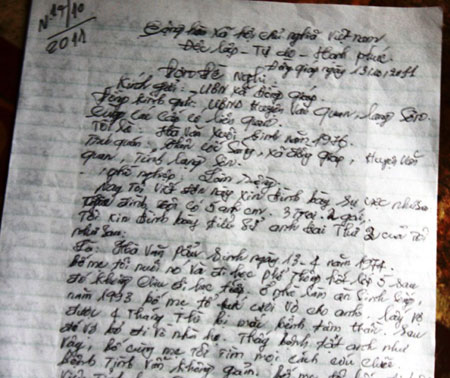 N: 17/10
2011
Cộng hòa xã hội chủ nghĩa Việt nam
Độc lập - Tự do - Hạnh phúc
Đồng giáp ngày 13.10.2011
Đơn đề Nghị
Kính gửi: - UBND xã Đồng Giáp
Đồng kính gửi: UBND Huyện Văn Quan, Lạng Sơn
Cùng các cấp có liên quan.
Tôi là: Hà Văn Xuôi, Sinh năm 1976
Trú quán, Sang, xã Đồng Giáp, Huyện Văn
quan, Tỉnh Lạng Sơn.
nghề nghiệp: Làm ruộng.
Nay Tôi viết đơn này xin trình bày sự việc như sau
gia đình tôi có 5 anh em. 3 trai, 2 gái.
Tôi xin trình bày tiểu sử anh trai Thứ 2 của tôi
như sau:
Hà Văn Sinh ngày 13-4 năm 1974.
bố mẹ tôi nuôi nó và đi học phổ Thông hết lớp 5 sau
đó không chịu đi học tiếp. ở nhà làm ăn Sinh
năm 1993 bố mẹ tổ chức cưới vợ cho anh. lấy vợ
được 4 Tháng Thì bị mắc bệnh tâm thần. Sau
đó vợ bỏ đi về nhà mẹ. Thấy bệnh tật anh như
vậy, bố cùng mẹ Tôi Tìm mọi cách cứu chữa.
bệnh Tình Vẫn không